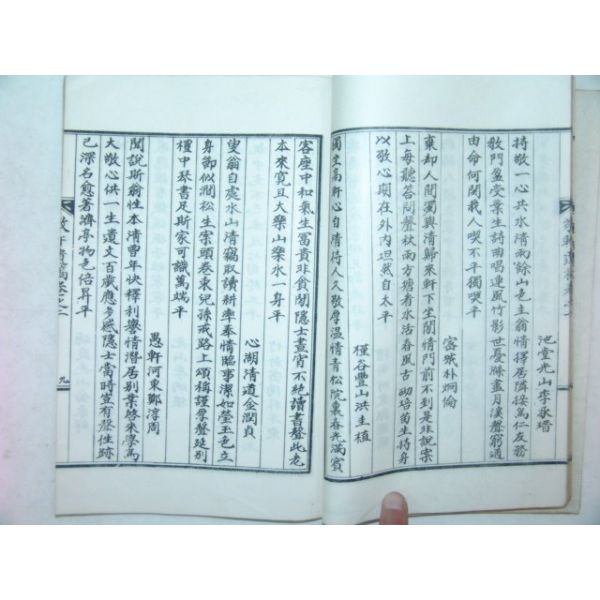 池堂光山李承
持敬一心共水清雨餘山色主翁情擇居隣接爲仁友務
敬門盈受業生詩雨唱連風竹影世憂滌盡月溪聲窮通
由命何關我人喫不平獨喫平
密城朴炯倫
棄却人間濁與清歸來軒下坐閒情門前不到是非說案
上每聽答問聲秋雨方塘看水活春風古培苗生持身
以敬心期在外內坦然自太平
槿谷豊山洪圭植
獨坐高軒心自清待人久敬厚溫情青松院裏春光滿賓
客座中和氣生富貴非貪閒隱士晝宵不絶讀書聲此老
本來寬且大樂山樂水一身平
心湖清道金潤貞
叟翁自處水山清竊取讀耕率泰情臨事潔如瑩玉色立
身節似澗松生案頭卷束兒孫戒路上頌稱謹厚聲延別
檀中琴書足斯家可識萬端平
愚軒河東鄭淳周
聞說斯翁性本清曹年快擇利譽情潛居別業啓來學爲
大敬心供一生遺文百歲應多感隱士當時豈有聲性跡
已深名愈著濟亭物色倍昇平
九